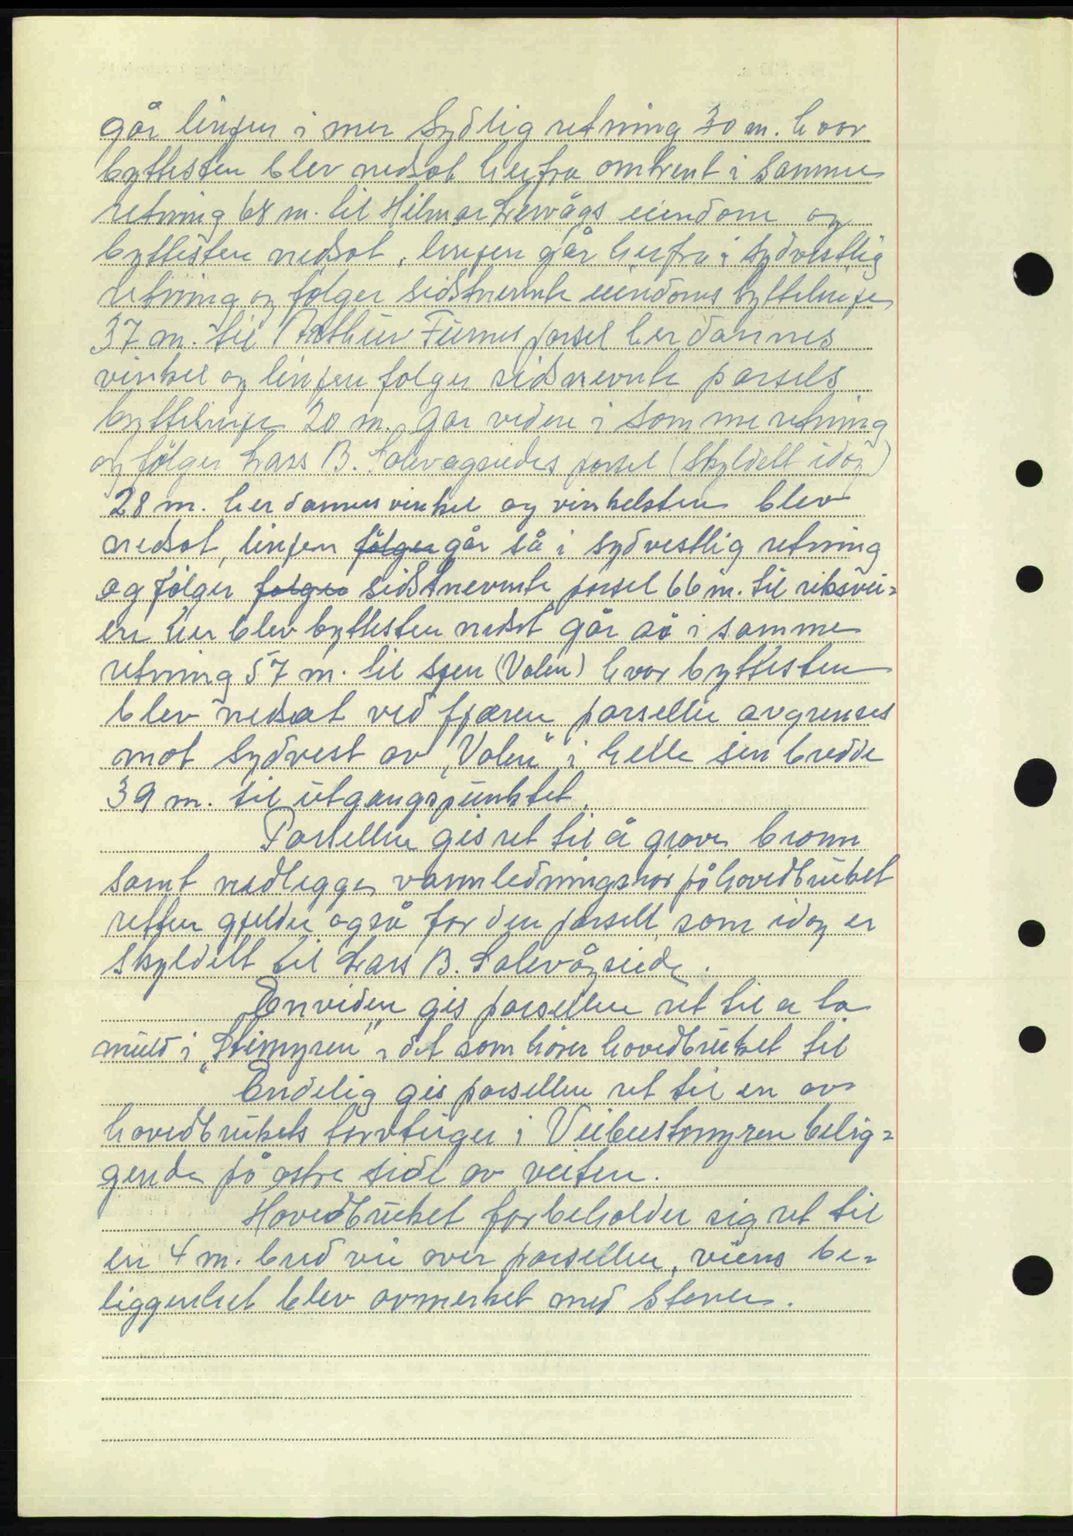 går linjen i mer sydlig retning 30 m. hvor
byttesten blev nedsat herfra omtrent i samme
retning 68 m. til Hilmar eiendom og
byttesten nedsat, linjen går herfra i sydvestlig
retning og følger sidstnevnte eiendoms byttelinje
37 m. til Arthur Furnes parsel her dannes
vinkel og linjen følger sidsnevnte parsels
byttelinje 20 m. går videre i samme retning
og følger Lars B. Solevågseides parsel (skyldelt idag)
28 m. her dannes vinkel og vinkelsten blev
nedsat, linjen følger går så i sydvestlig retning
og følger følger sidstnevnte parsel 66 m. til riksvei=
en her blev byttesten nedsat går så i samme
retning 57 m. til sjøen (Valen) hvor byttesten
blev nedsat ved fjæren parsellen avgrenses
mot sydvest av "Valen" i helle sin bredde
39 m. til utgangspunktet.
Parsellen gis ret til å grave brønn
samt nedlegge vannledningsrør på hovedbruket
retten gjelder også for den parsell som idag er
skyldelt til Lars B. Solevågseide.
Enviden gis parsellen ret til a ta
muld i "Stimyren", i det som hører hovedbruket til
Endelig gis parsellen ret til en av
hovedbrukets torvteiger i belig=
gende på østre side av veiten.
Hovedbruket forbeholder sig ret til
en 4 m. bred vei over parsellen, veiens be=
liggenhet blev avmerket med staver.